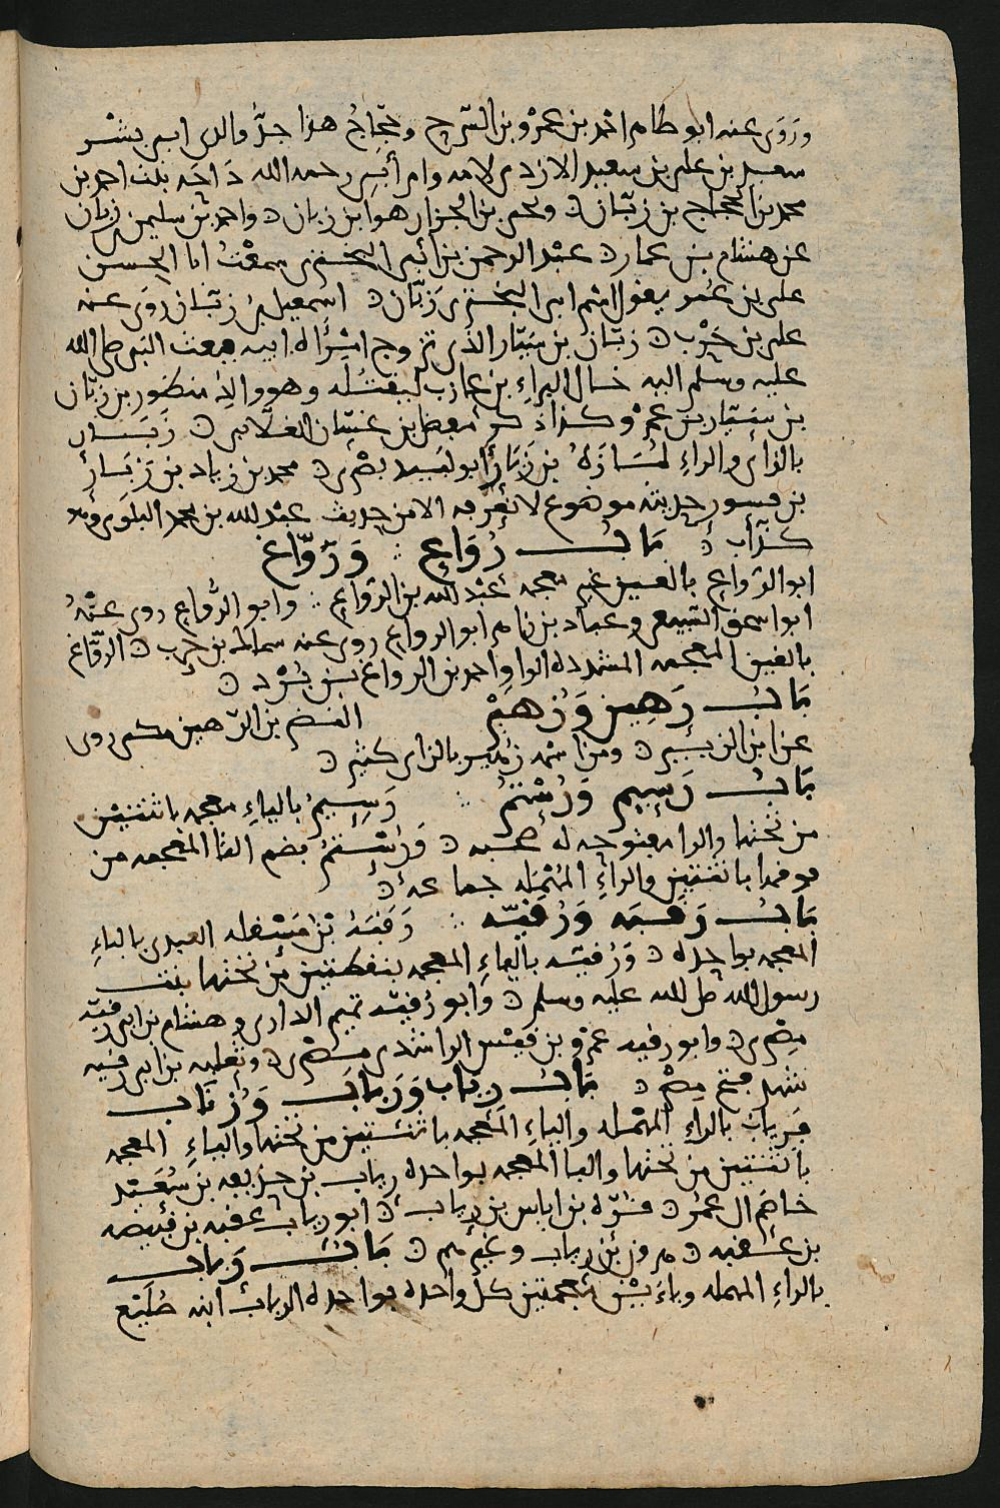 وروى عنه ابو طاهر احمد بن عمرو بن السرح وحجاج هذا جد والدي ابي بشر
سعيد بن علي بن سعيد الازدي لامه وام أبي رحمه الله خديجه بنت احمد بن
محمد بن الحجاج بن زبّان ۵ ويحيى بن الجزار هو ابن زبان ۵ واحمد بن سليمن بن زبان
عن هشام بن عمار ۵ عبد الرحمن بن ابي البختري سمعت ابا الحسن
علي بن عمر يقول اسم ابي البختري زبّان ۵ اسمعيل بن زبّان روى عنه
علي بن حرب ۵ زبّان بن سيّار الذي تزوج امرأة ابيه فبعث النبي صلى الله
عليه وسلم اليه خال البراء بن عازب ليقتله وهو والد منظور بن زبّان
بن سيّار بن عمرو كذا ذكر مفضل بن غسّان الغلابي ۵ زَبَار
بالزاي والراء بن زَبَار أبو لبيد بصري ۵ محمد بن زياد بن زبّار
بن ميسور حديثه موضوع لا نعرفه الا من حديث عبد الله بن محمد البلوي وهو
كذاب ۵ باب رُوَاع وَرَوَّاغ
ابو الرواع بالعين غير معجمه عبد الله بن الرواع وابو الرواع روى عنه
ابو اسحق السبيعي وعباد بن ابو الرواع روى عنه سماك بن حرب ۵ الروّاغ
بالغين المعجمه المشدده الواو احمد بن الرواغ بن برد ۵
باب رَهِين وَزُهَيْر النضر بن الرّهين مكي روى
عن ابن الزبير ۵ ومن اسمه زهير بالزاي كثير ۵
باب رَسِيم وَرُسْتُم رَسِيمُ بالياء معجمه باثنتين
من تحتها والراء مفتوحه له صحبه ۵ وَرُسْتُمُ بضم التا المعجمه من
فوقها باثنتين والراء المهمله جماعه ۵
باب رَقَبَه وَرُقَيّه رَقَبَهُ بن مَصْقله العبدي بالباء
المعجمه بواحده ۵ وَرُقَيّه بالياء المعجمه بنقطتين من تحتها بنت
رسول الله صلى الله عليه وسلم ۵ وابو رُقيّه تميم الداري وهشام بن ابي رقيّه
مصري ۵ وابو رقيه عمرو بن قيس الراشدي مصري ۵ وثعلبه بن ابي رقيه
شهد فتح مصر ۵ باب رِيَاب وَرَبَاب وَزَبَاب
فرياب بالراء المهمله والياء المعجمه باثنتين من تحتها والباء المعجمه
باثنتين من تحتها والبا المعجمه بواحده رياب بن حذيفه بن سُعَيد
خاصم ال عمر ۵ قرّه بن اياس بن رياب ۵ ابو رياب عقبه بن قبيصه
بن عقبه ۵ هرون بن رياب وغيرهم ۵ باب رَبَاب
بالراء المهمله وباءيْن معجمتين كل واحده بواحده الرباب ابنه صُلَيع